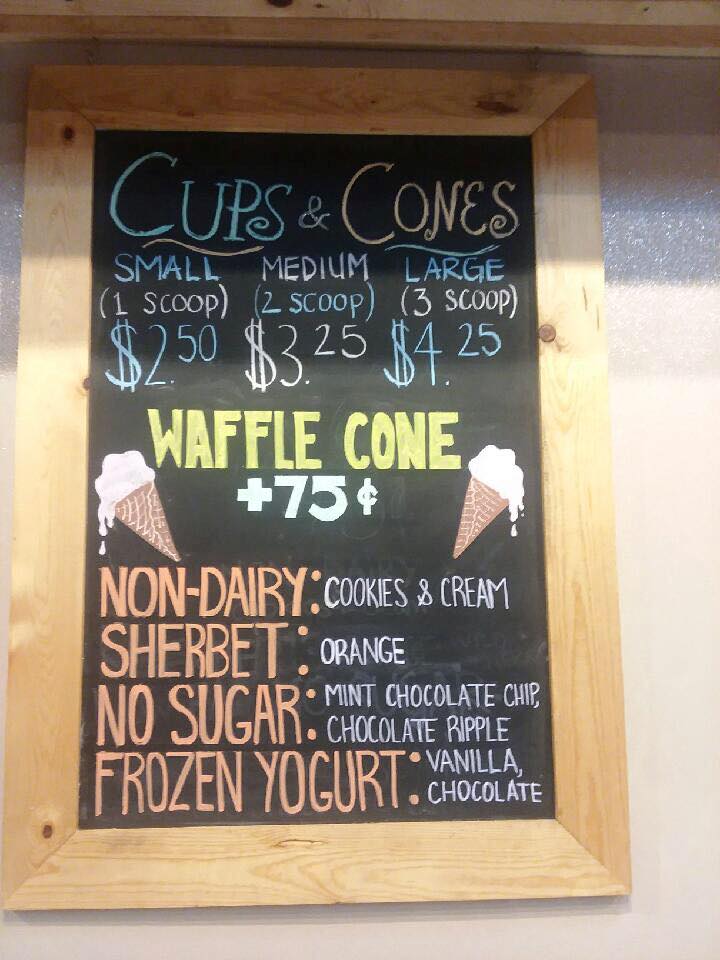 CUPS & CONES
SMALL MEDIUM LARGE
(1 SCOOP) (2 SCOOP) (3 SCOOP)
$2.50 $3.25 $4.25
WAFFLE CONE
+75¢
NON-DAIRY: COOKIES & CREAM
SHERBET: ORANGE
NO SUGAR: MINT CHOCOLATE CHIP,
CHOCOLATE RIPPLE
FROZEN YOGURT: VANILLA,
CHOCOLATE